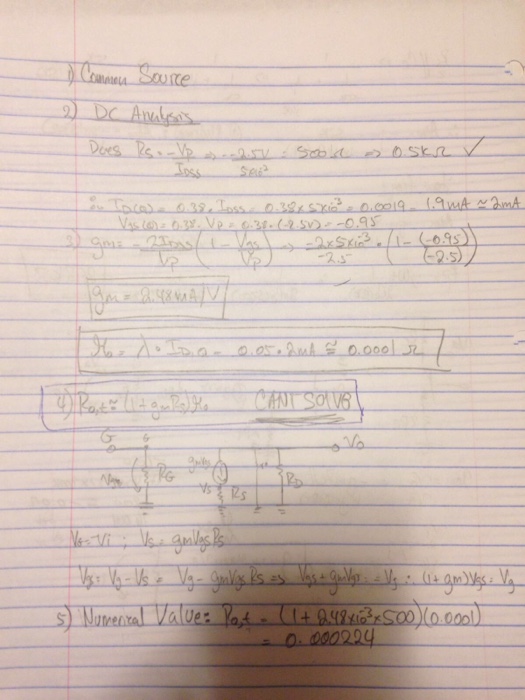 1) Common Source
2) DC Analysis
Does Rs = -Vp/IDSS => --2.5V/5x10^-3 = 500Ω => 0.5kΩ ✓
∴ ID(Q) = 0.38 · IDSS = 0.38 x 5x10^-3 = 0.0019 = 1.9mA ≃ 2mA
VGS(Q) = 0.38 · Vp = 0.38 · (-2.5V) = -0.95
3) gm = -2IDSS/Vp (1 - Vgs/Vp) => -2x5x10^-3/-2.5 · (1 - (-0.95)/(-2.5))
gm = 2.48mA/V
ro = λ · ID,Q = 0.05 · 2mA ≅ 0.0001 Ω
4) Ro,t ≅ (1+gmRs)ro CANT SOLVE
G Vo
RG gmVgs Vs Rs RD
Vg = Vi ; Vs = gmVgsRs
Vgs = Vg - Vs = Vg - gmVgsRs => Vgs + gmVgs = Vg ∴ (1+gm)Vgs = Vg
5) Numerical Value: Ro,t = (1 + 2.48x10^-3 x 500)(0.0001)
= 0.000224